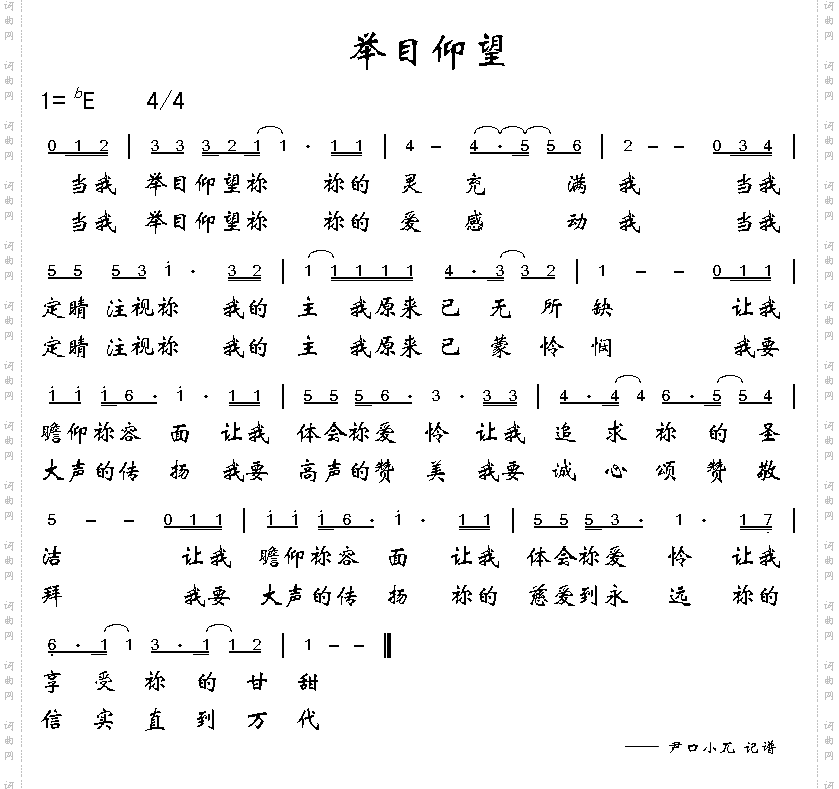 举目仰望
1= bE 4/4
0 1 2 | 3 3 3 2 1 1 · 1 1 | 4 – 4 · 5 5 6 | 2 – – 0 3 4 |
当我 举目仰望祢 祢的 灵 充 满 我 当我
当我 举目仰望祢 祢的 爱 感 动 我 当我
5 5 5 3 i · 3 2 | 1 1 1 1 1 4 · 3 3 2 | 1 – – 0 1 1 |
定睛 注视祢 我的 主 我原来 已 无 所 缺 让我
定睛 注视祢 我的 主 我原来 已 蒙 怜 悯 我要
i i i 6 · i · 1 1 | 5 5 5 6 · 3 · 3 3 | 4 · 4 4 6 · 5 5 4 |
瞻仰祢容 面 让我 体会祢爱 怜 让我 追 求 祢 的 圣
大声的传 扬 我要 高声的赞 美 我要 诚 心 颂 赞 敬
5 – – 0 1 1 | i i i 6 · i · 1 1 | 5 5 5 3 · 1 · 1 7 |
洁 让我 瞻仰祢容 面 让我 体会祢爱 怜 让我
拜 我要 大声的传 扬 祢的 慈爱到永 远 祢的
6 · 1 1 3 · 1 1 2 | 1 – – ‖
享 受 祢 的 甘 甜
信 实 直 到 万 代
—— 尹口小兀 记谱
词曲网